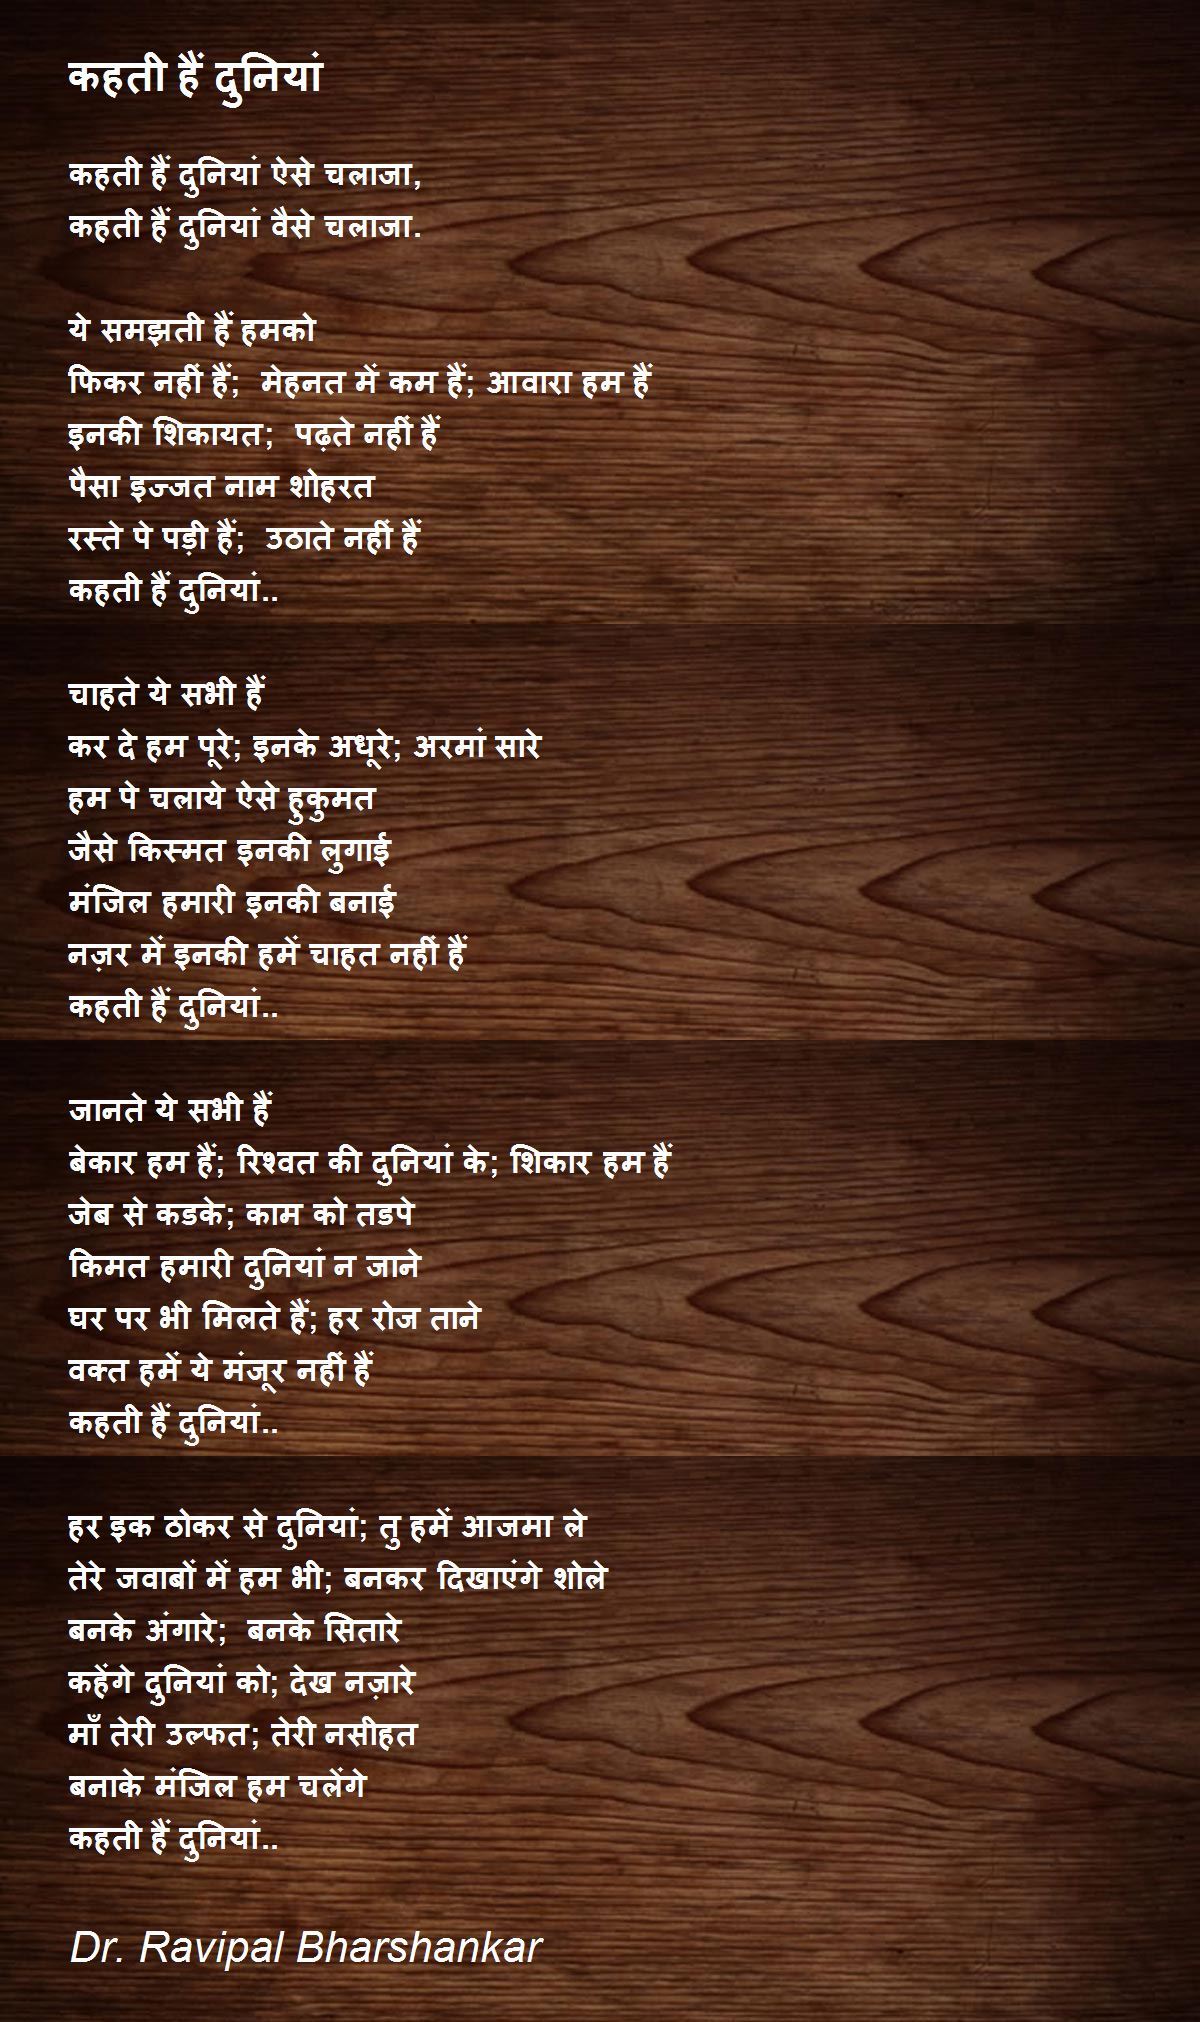 कहती हैं दुनियां
कहती हैं दुनियां ऐसे चलाजा,
कहती हैं दुनियां वैसे चलाजा.
ये समझती हैं हमको
फिकर नहीं हैं;  मेहनत में कम हैं; आवारा हम हैं
इनकी शिकायत;  पढ़ते नहीं हैं
पैसा इज्जत नाम शोहरत
रस्ते पे पड़ी हैं;  उठाते नहीं हैं
कहती हैं दुनियां..
चाहते ये सभी हैं
कर दे हम पूरे; इनके अधूरे; अरमां सारे
हम पे चलाये ऐसे हुकुमत
जैसे किस्मत इनकी लुगाई
मंजिल हमारी इनकी बनाई
नज़र में इनकी हमें चाहत नहीं हैं
कहती हैं दुनियां..
जानते ये सभी हैं
बेकार हम हैं; रिश्वत की दुनियां के; शिकार हम हैं
जेब से कडके; काम को तडपे
किमत हमारी दुनियां न जाने
घर पर भी मिलते हैं; हर रोज ताने
वक्त हमें ये मंजूर नहीं हैं
कहती हैं दुनियां..
हर इक ठोकर से दुनियां; तु हमें आजमा ले
तेरे जवाबों में हम भी; बनकर दिखाएंगे शोले
बनके अंगारे;  बनके सितारे
कहेंगे दुनियां को; देख नज़ारे
माँ तेरी उल्फत; तेरी नसीहत
बनाके मंजिल हम चलेंगे
कहती हैं दुनियां..
Dr. Ravipal Bharshankar